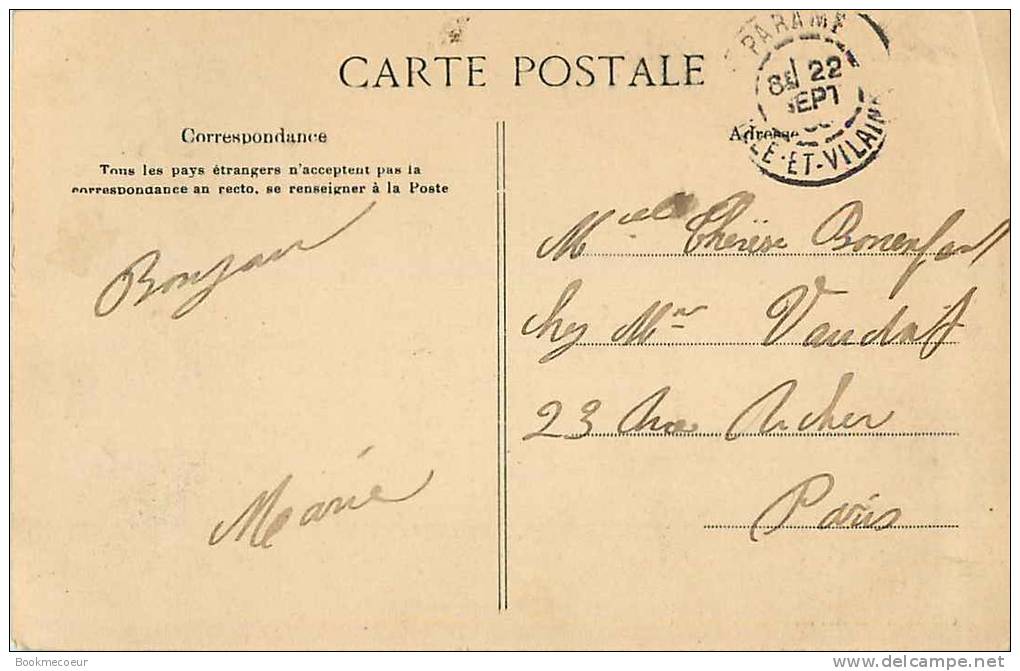 CARTE POSTALE
PARAMÉ
22
SEPT
ILLE-ET-VILAINE
Correspondance
Tous les pays étrangers n'acceptent pas la
correspondance au recto, se renseigner à la Poste
Adresse
Bonjour
Marie
Melle Thérèse Bonenfant
chez Mr
23 Rue Richer
Paris
Bookmecoeur
delcampe.net